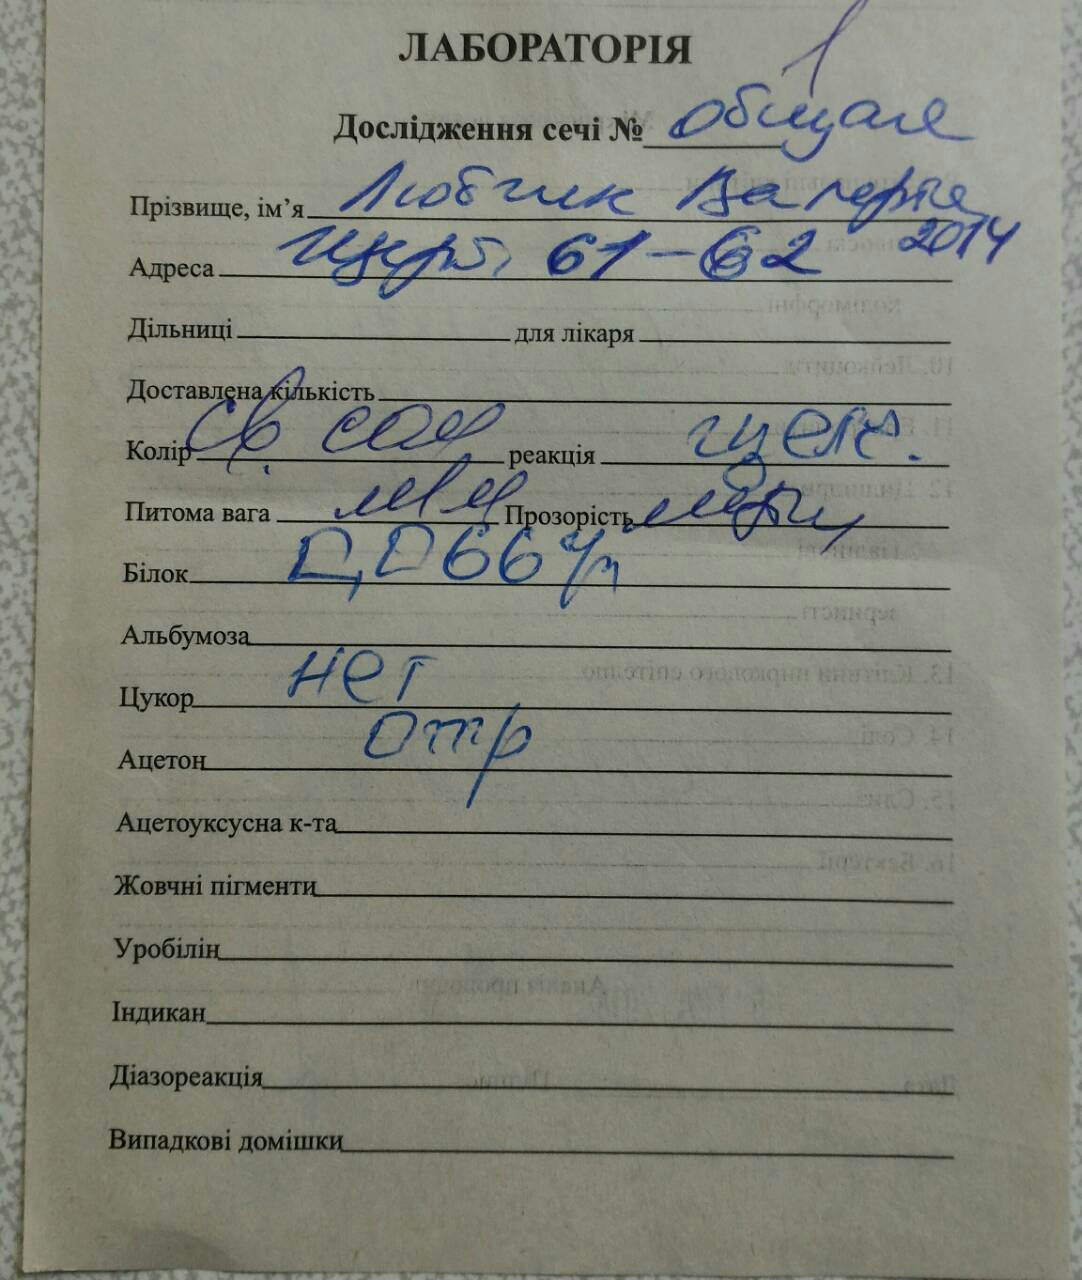 ЛАБОРАТОРІЯ
Дослідження сечі № общая
Прізвище, ім'я Любчик Валерия
Адреса 61-62 2014
Дільниці для лікаря
Доставлена кількість
Колір св сол реакція щел.
Питома вага м/м Прозорість
Білок 0,066 г/л
Альбумоза
Цукор нет
Ацетон отр
Ацетоуксусна к-та
Жовчні пігменти
Уробілін
Індикан
Діазореакція
Випадкові домішки